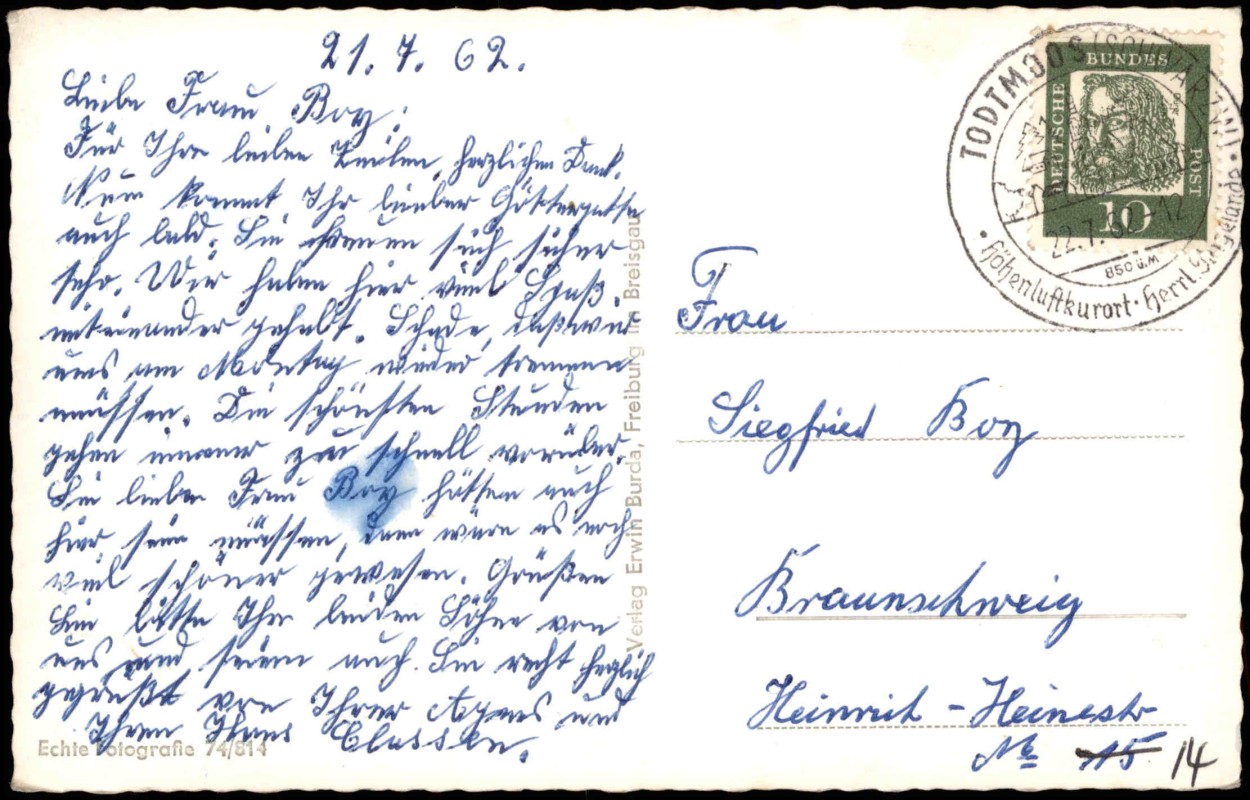 21.7.62.
Liebe Frau Boy!
Für Ihre lieben Zeilen, herzlichen Dank.
Nun kommt Ihr lieber Göttergatte
auch bald. Sie freuen sich sicher
sehr. Wir haben hier viel Spaß
miteinander gehabt. Schade, daß wir
uns am Montag wieder trennen
müssen. Die schönsten Stunden
gehen immer zu schnell vorüber.
Sie liebe Frau Boy hätten auch
hier sein müssen, dann wäre es noch
viel schöner gewesen. Grüßen
Sie bitte Ihre beiden Söhne von
uns und seien auch Sie recht herzlich
gegrüßt von Ihrer Agnes und
Ihrem Hans Classen.
Echte Fotografie 74/814
Verlag Erwin Burda, Freiburg im Breisgau
DEUTSCHE BUNDESPOST
10
TODTMOOS (SCHWARZW)
22.7.62-12
850 ü.M
Höhenluftkurort · Herrl. Skigelände
Frau
Siegfried Boy
Braunschweig
Heinrich-Heinestr
No 15 14